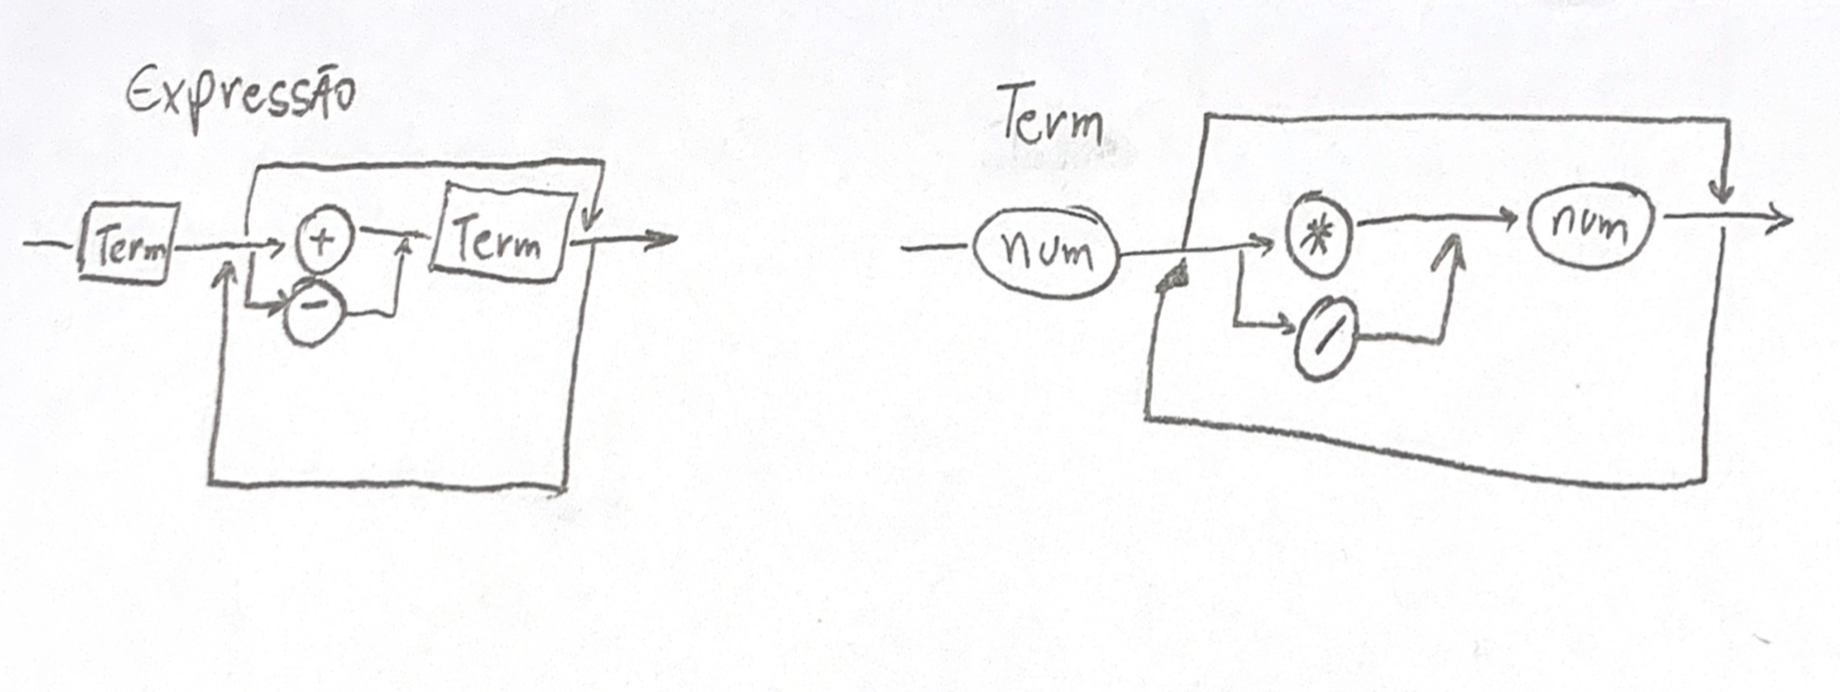 Expressão
Term + Term
-
Term
num * num
/